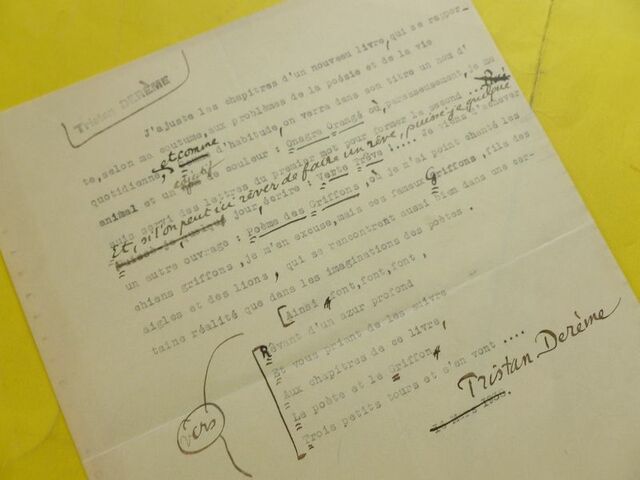 Tristan DERÈME
J'ajuste les chapitres d'un nouveau livre, qui se rappor-
te, selon ma coutume, aux problèmes de la poésie et de la vie
quotidienne, et comme d'habitude, on verra dans son titre un nom d'
animal et un de couleur : Onagre Orangé où, paresseusement, je me
suis servi des lettres du premier mot pour former le second ...
Et, si l'on peut ici rêver de faire un rêve, puissé-je quelque
jour, écrire : Verte Trêve !.... Je viens d'achever
un autre ouvrage : Poème des Griffons, où je n'ai point chanté les
chiens griffons, je m'en excuse, mais ces fameux Griffons, fils des
aigles et des lions, qui se rencontrent aussi bien dans une cer-
taine réalité que dans les imaginations des poètes.
Ainsi font, font, font,
Rêvant d'un azur profond
Et vous priant de les suivre
Aux chapitres de ce livre,
Le poète et le Griffon,
Trois petits tours et s'en vont ....
vers
Tristan Derème